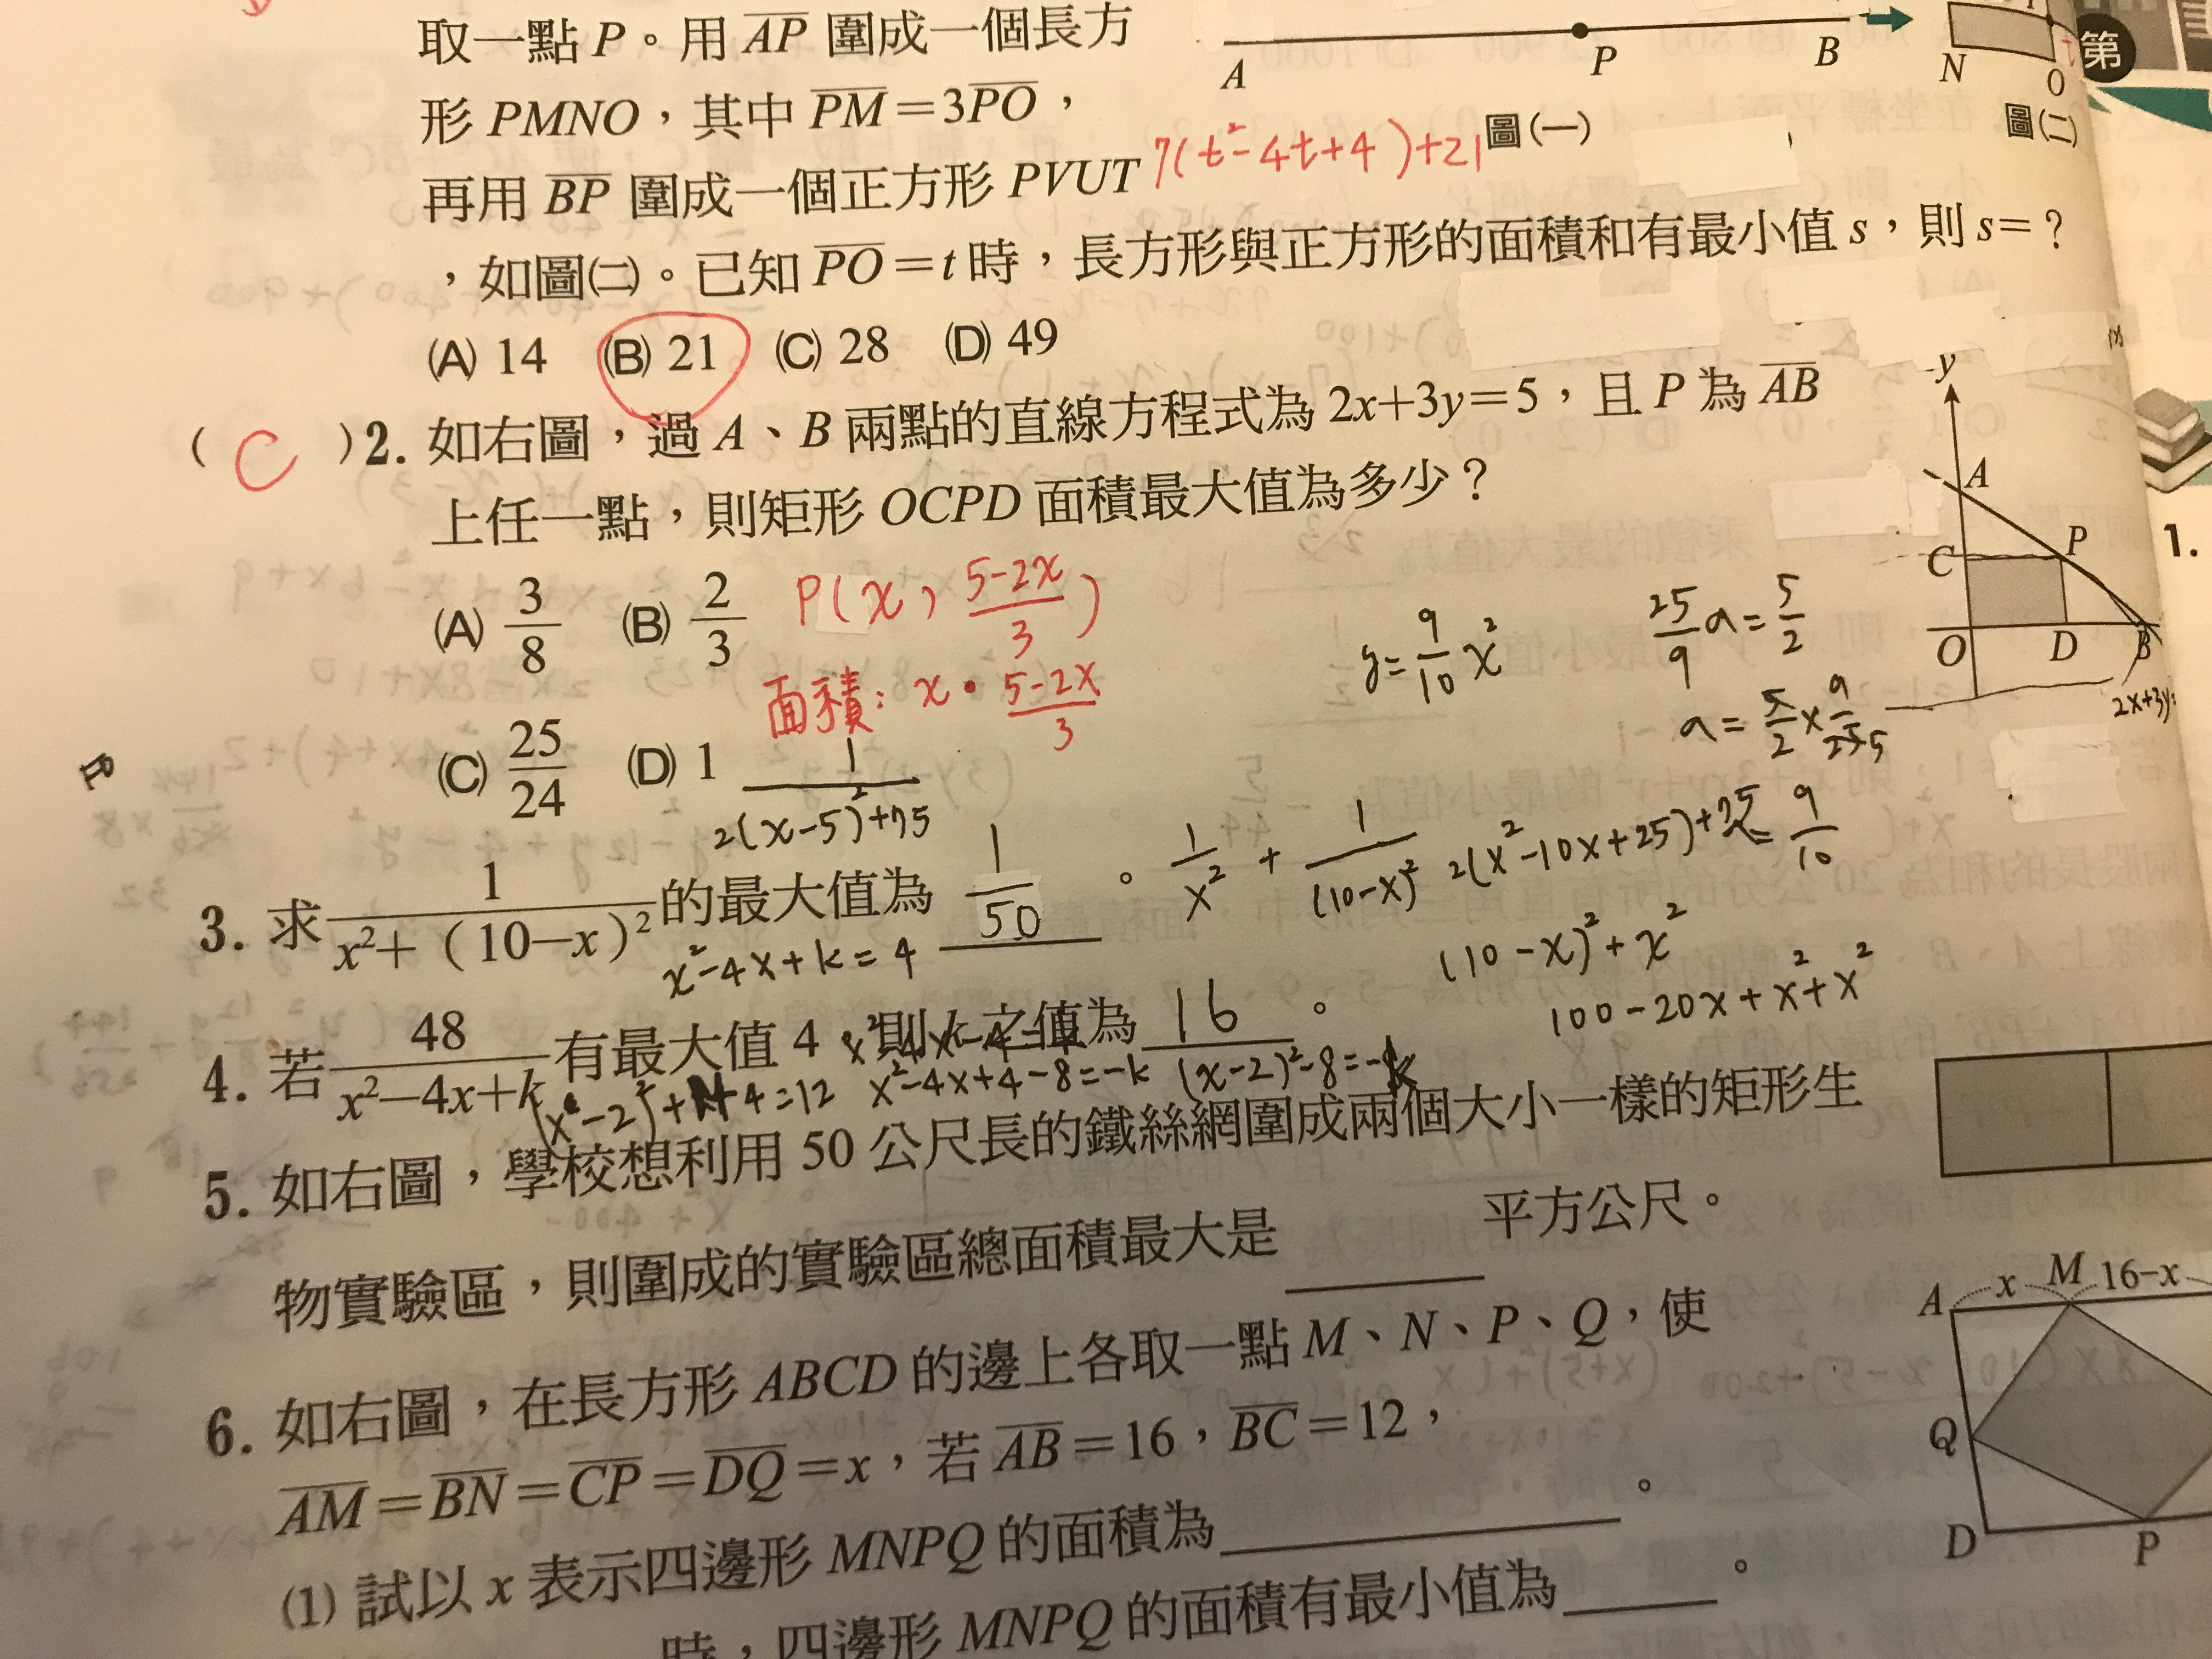 取一點 P。用 AP 圍成一個長方
形 PMNO，其中 PM=3PO，
再用 BP 圍成一個正方形 PVUT 7(t²-4t+4)+21
，如圖㈡。已知 PO=t 時，長方形與正方形的面積和有最小值 s，則 s=？
(A) 14 (B) 21 (C) 28 (D) 49
A P B
圖㈠
N O
圖㈡
第
( C )2. 如右圖，過 A、B 兩點的直線方程式為 2x+3y=5，且 P 為 AB
上任一點，則矩形 OCPD 面積最大值為多少？
(A) 3/8 (B) 2/3
P(x, (5-2x)/3)
面積: x·(5-2x)/3
(C) 25/24 (D) 1
y
A
C P
O D B
2x+3y
1.
y=9/10 x²
25/9 a=5/2
1/(2(x-5)²+75)
1/x² + 1/(10-x)²
9/10
3. 求 1/(x²+(10-x)²) 的最大值為 1/50 。
x²-4x+k=4
(10-x)²+x²
100-20x+x²+x²
4. 若 48/(x²-4x+k) 有最大值 4 則k之值為 16 。
x²-4x+4-8=-k (x-2)²-8=-k
5. 如右圖，學校想利用 50 公尺長的鐵絲網圍成兩個大小一樣的矩形生
物實驗區，則圍成的實驗區總面積最大是 平方公尺。
6. 如右圖，在長方形 ABCD 的邊上各取一點 M、N、P、Q，使
AM=BN=CP=DQ=x，若 AB=16，BC=12，
(1) 試以 x 表示四邊形 MNPQ 的面積為 。
時，四邊形 MNPQ 的面積有最小值為 。
A x M 16-x
Q
D P